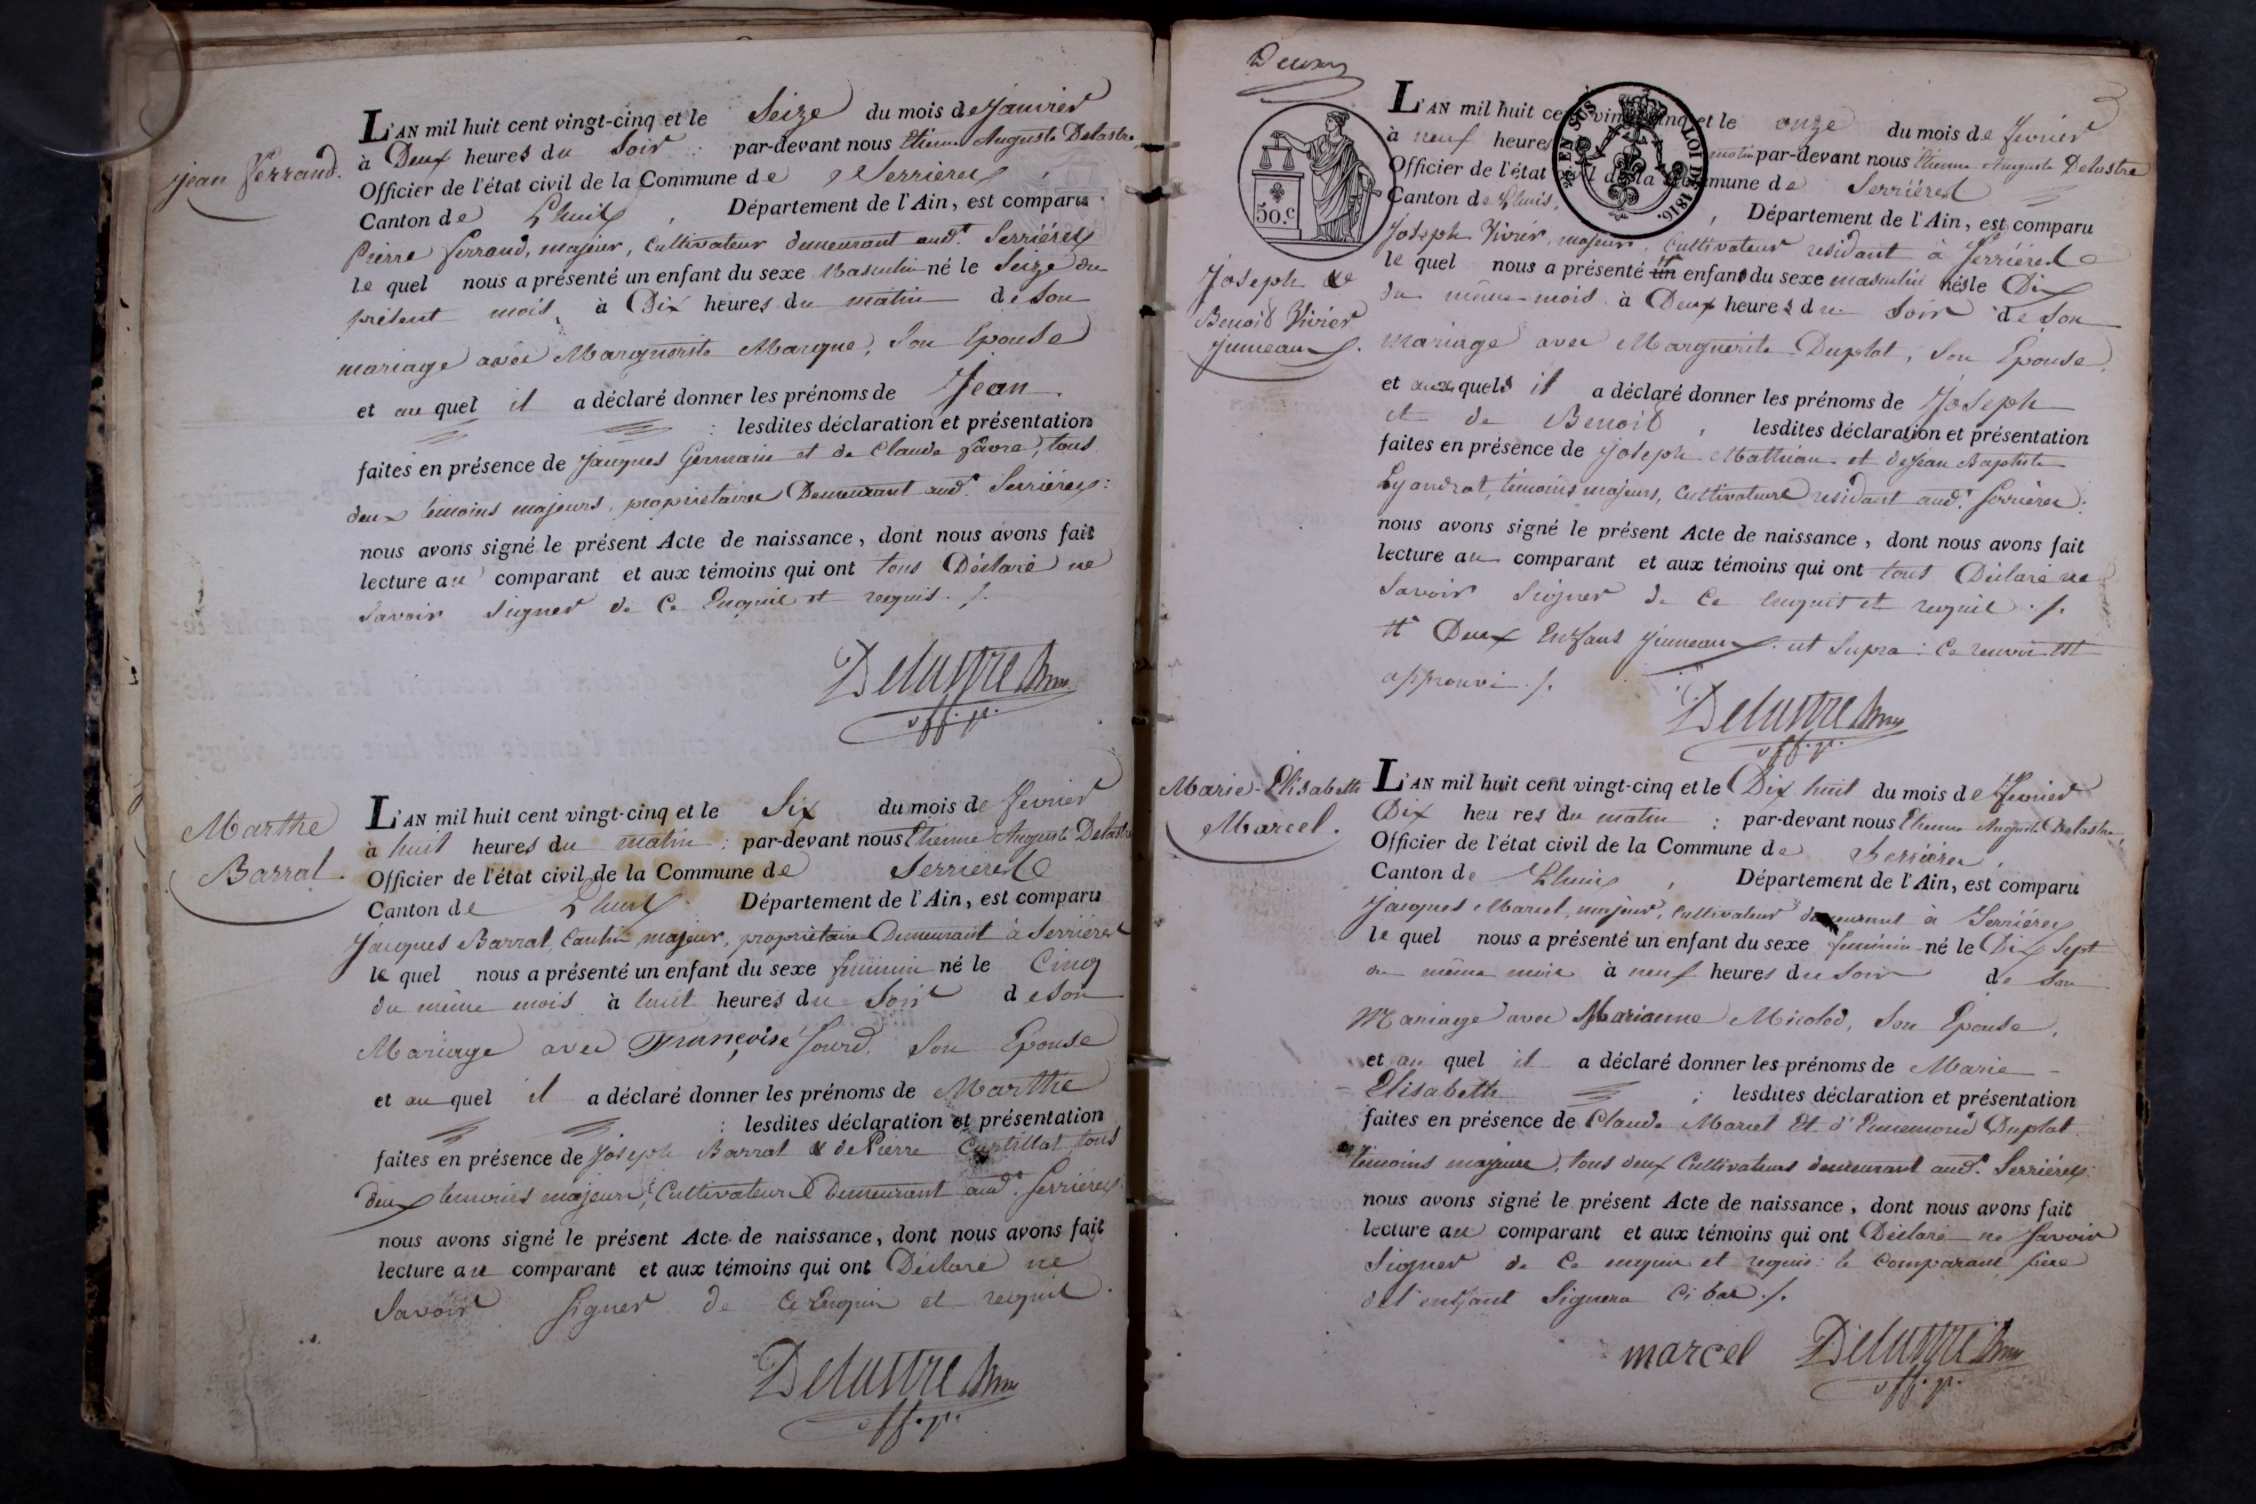 Jean Ferrand.
L'AN mil huit cent vingt-cinq et le Seize du mois de Janvier
à Deux heures du Soir : par-devant nous Etienne Auguste Delastre
Officier de l'état civil de la Commune de Serrières,
Canton de Lhuis, Département de l'Ain, est comparu
Pierre Ferrand, majeur, Cultivateur demeurant aud.t Serrières
le quel nous a présenté un enfant du sexe Masculin né le Seize du
présent mois, à Dix heures du matin de Son
mariage avec Marguerite Marque, Son Epouse
et au quel il a déclaré donner les prénoms de Jean.
: lesdites déclaration et présentation
faites en présence de Jacques Germain et de Claude Favre, tous
deux témoins majeurs, propriétaires Demeurant aud.t Serrières:
nous avons signé le présent Acte de naissance, dont nous avons fait
lecture au comparant et aux témoins qui ont tous Déclaré ne
Savoir Signer de Ce Enquis et requis ./.
Delastre
off. p.
Marthe
Barral.
L'AN mil huit cent vingt-cinq et le Six du mois de Fevrier
à huit heures du matin : par-devant nous Etienne Auguste Delastre
Officier de l'état civil de la Commune de Serrières
Canton de Lhuis Département de l'Ain, est comparu
Jacques Barral, majeur, propriétaire Demeurant à Serrières
le quel nous a présenté un enfant du sexe feminin né le Cinq
du même mois à huit heures du Soir de Son
Mariage avec Françoise Sourd, Son Epouse
et au quel il a déclaré donner les prénoms de Marthe
: lesdites déclaration et présentation
faites en présence de Joseph Barral & de Pierre Curtillat tous
deux temoins majeurs, Cultivateurs Demeurant aud.t Serrières
nous avons signé le présent Acte de naissance, dont nous avons fait
lecture au comparant et aux témoins qui ont Déclaré ne
Savoir Signer de Ce Enquis et requis.
Delastre
off. p.
Deux
3
50.C
25 EN SUS LOI DE 1816.
Joseph &
Benoit Vivier
Jumeaux.
L'AN mil huit cent vingt-cinq et le onze du mois de Fevrier
à neuf heures matin par-devant nous Etienne Auguste Delastre
Officier de l'état civil de la Commune de Serrières
Canton de Lhuis, Département de l'Ain, est comparu
Joseph Vivier, majeur, Cultivateur residant à Serrières
le quel nous a présenté un enfans du sexe masculin nés le Dix
du même mois à Deux heures du Soir de Son
mariage avec Marguerite Duplat, Son Epouse,
et aux quels il a déclaré donner les prénoms de Joseph
et de Benoit, lesdites déclaration et présentation
faites en présence de Joseph Mathieu et de Jean Baptiste
témoins majeurs, Cultivateurs residant aud.t Serrières:
nous avons signé le présent Acte de naissance, dont nous avons fait
lecture au comparant et aux témoins qui ont tous Déclaré ne
Savoir Signer de Ce Enquis et requis ./.
Deux Enfans Jumeaux. ut Supra: Ce renvoi est
approuvé ./.
Delastre
off. p.
Marie-Elisabeth
Marcel.
L'AN mil huit cent vingt-cinq et le Dix huit du mois de Fevrier
Dix heures du matin : par-devant nous Etienne Auguste Delastre,
Officier de l'état civil de la Commune de Serrières,
Canton de Lhuis, Département de l'Ain, est comparu
Jacques Marcel, majeur, Cultivateur demeurant à Serrières
le quel nous a présenté un enfant du sexe feminin né le Dix Sept
du même mois à neuf heures du Soir de Son
Mariage avec Marianne Micolod, Son Epouse,
et au quel il a déclaré donner les prénoms de Marie
Elisabeth ; lesdites déclaration et présentation
faites en présence de Claude Marcel Et d'Ennemond Duplat
témoins majeurs, tous deux Cultivateurs demeurant aud.t Serrières:
nous avons signé le présent Acte de naissance, dont nous avons fait
lecture au comparant et aux témoins qui ont Déclaré ne Savoir
Signer de Ce enquis et requis: le Comparant père
de l'enfant Signera Ci bas ./.
marcel Delastre
off. p.